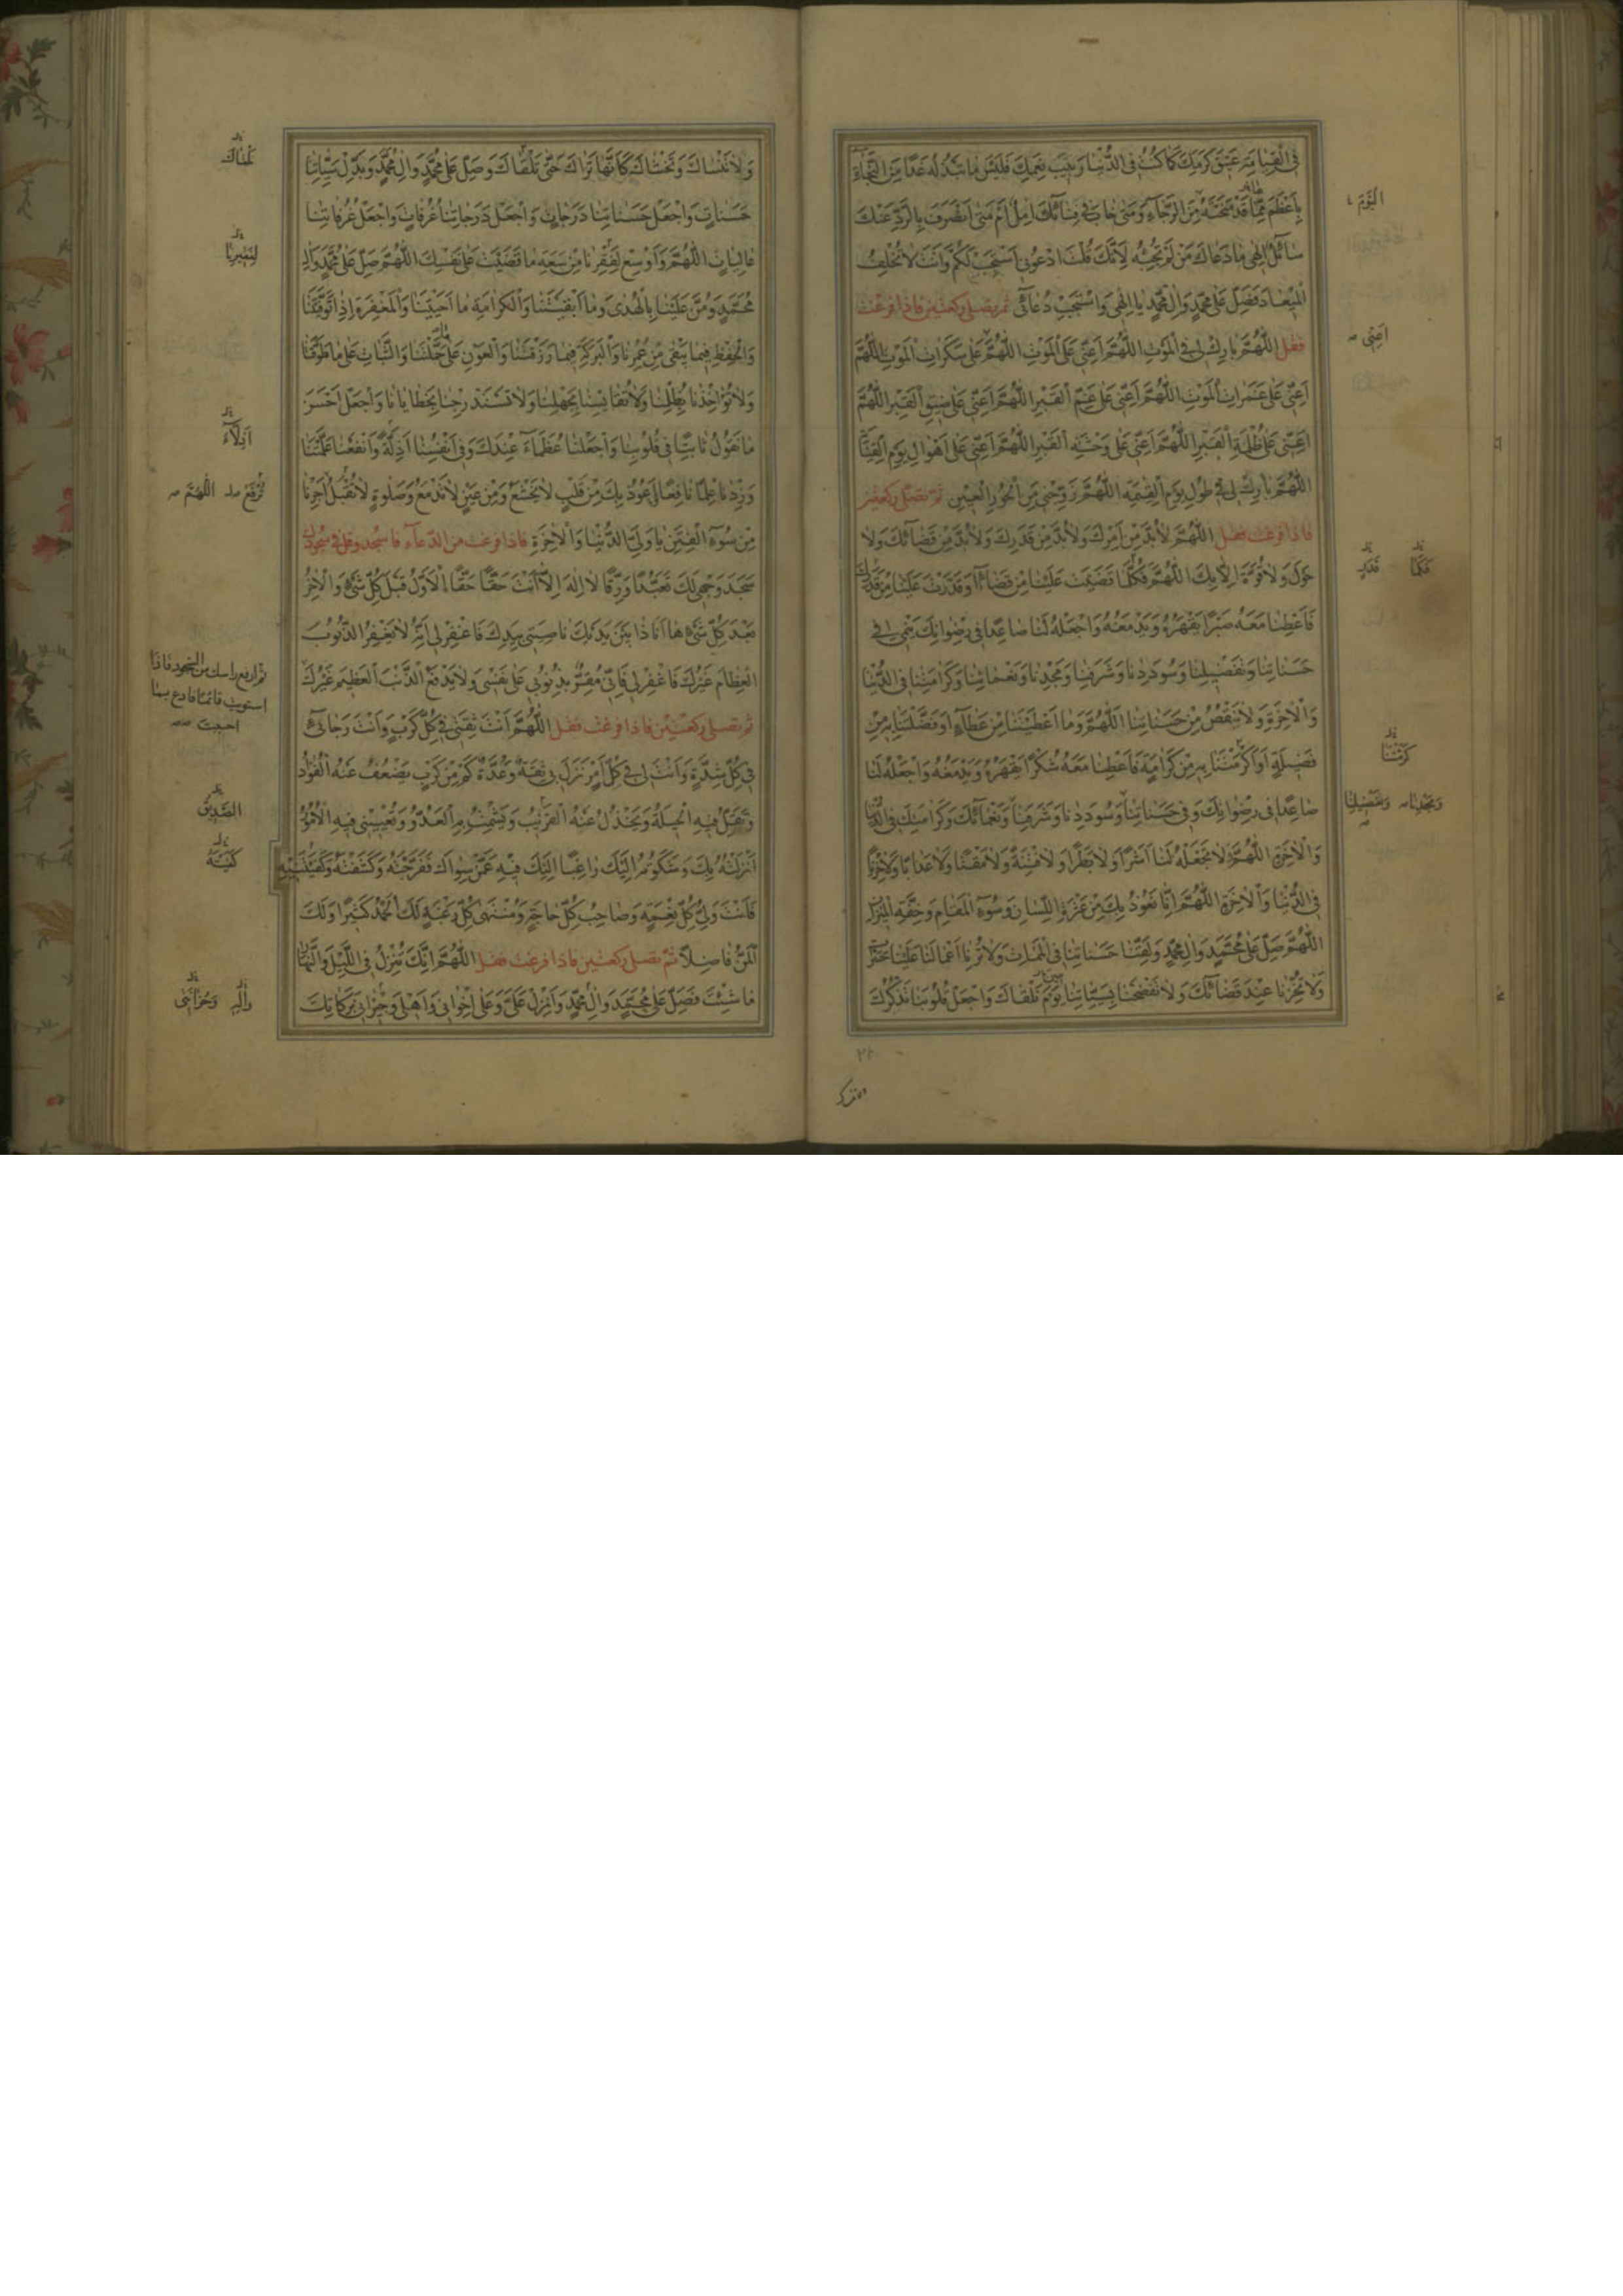 فِي الْقِيَامَةِ عَنِيقَ كَرَمِكَ كَمَا كُنْتُ فِي الدُّنْيَا رَبِيبَ نِعَمِكَ فَلَيْسَ مَا تَبْذُلُهُ غَدًا مِنَ النَّجَاةِ
بِأَعْظَمَ مِمَّا قَدْ مَنَحْتَهُ مِنَ الرَّجَاءِ وَمَتَى خَابَ فِي فِنَائِكَ آمِلٌ أَمْ مَتَى انْصَرَفَ بِالرَّدِّ عَنْكَ
سَائِلٌ إِلَهِي مَا دَعَاكَ مَنْ لَمْ تُجِبْهُ لِأَنَّكَ قُلْتَ ادْعُونِي أَسْتَجِبْ لَكُمْ وَأَنْتَ لَا تُخْلِفُ
الْمِيعَادَ فَصَلِّ عَلَى مُحَمَّدٍ وَآلِ مُحَمَّدٍ يَا إِلَهِي وَاسْتَجِبْ دُعَائِي ثم تصلي ركعتين فاذا فرغت
فقل اللَّهُمَّ بَارِكْ لِي فِي الْمَوْتِ اللَّهُمَّ أَعِنِّي عَلَى الْمَوْتِ اللَّهُمَّ عَلَى سَكَرَاتِ الْمَوْتِ اللَّهُمَّ
أَعِنِّي عَلَى غَمَرَاتِ الْمَوْتِ اللَّهُمَّ أَعِنِّي عَلَى غَمِّ الْقَبْرِ اللَّهُمَّ أَعِنِّي عَلَى ضِيقِ الْقَبْرِ اللَّهُمَّ
أَعِنِّي عَلَى ظُلْمَةِ الْقَبْرِ اللَّهُمَّ أَعِنِّي عَلَى وَحْشَةِ الْقَبْرِ اللَّهُمَّ أَعِنِّي عَلَى أَهْوَالِ يَوْمِ الْقِيَامَةِ
اللَّهُمَّ بَارِكْ لِي فِي طُولِ يَوْمِ الْقِيمَةِ اللَّهُمَّ زَوِّجْنِي مِنَ الْحُورِ الْعِينِ ثم تصلي ركعتين
فاذا فرغت فقل اللَّهُمَّ لَا بُدَّ مِنْ أَمْرِكَ وَلَا بُدَّ مِنْ قَدَرِكَ وَلَا بُدَّ مِنْ قَضَائِكَ وَلَا
حَوْلَ وَلَا قُوَّةَ إِلَّا بِكَ اللَّهُمَّ فَكُلَّمَا قَضَيْتَ عَلَيْنَا مِنْ قَضَاءٍ أَوْ قَدَّرْتَ عَلَيْنَا مِنْ قَدَرِكَ
فَأَعْطِنَا مَعَهُ صَبْرًا يَقْهَرُهُ وَيَدْمَغُهُ وَاجْعَلْهُ لَنَا صَاعِدًا فِي رِضْوَانِكَ يَنْمِي فِي
حَسَنَاتِنَا وَتَفْضِيلِنَا وَسُودَدِنَا وَشَرَفِنَا وَمَجْدِنَا وَنَعْمَائِنَا وَكَرَامَتِنَا فِي الدُّنْيَا
وَالْآخِرَةِ وَلَا تَنْقُصْ مِنْ حَسَنَاتِنَا اللَّهُمَّ وَمَا أَعْطَيْتَنَا مِنْ عَطَاءٍ أَوْ فَضَّلْتَنَا بِهِ مِنْ
فَضِيلَةٍ أَوْ أَكْرَمْتَنَا بِهِ مِنْ كَرَامَةٍ فَأَعْطِنَا مَعَهُ شُكْرًا يَقْهَرُهُ وَيَدْمَغُهُ وَاجْعَلْهُ لَنَا
صَاعِدًا فِي رِضْوَانِكَ وَفِي حَسَنَاتِنَا وَسُودَدِنَا وَشَرَفِنَا وَنَعْمَائِكَ وَكَرَامَتِكَ فِي الدُّنْيَا
وَالْآخِرَةِ اللَّهُمَّ لَا تَجْعَلْهُ لَنَا أَشَرًا وَلَا بَطَرًا وَلَا فِتْنَةً وَلَا مَقْتًا وَلَا عَذَابًا وَلَا خِزْيًا
فِي الدُّنْيَا وَالْآخِرَةِ اللَّهُمَّ إِنَّا نَعُوذُ بِكَ مِنْ عَثْرَةِ اللِّسَانِ وَسُوءِ الْمَقَامِ وَخِفَّةِ الْمِيزَانِ
اللَّهُمَّ صَلِّ عَلَى مُحَمَّدٍ وَآلِ مُحَمَّدٍ وَلَقِّنَا حَسَنَاتِنَا فِي الْمَمَاتِ وَلَا تُرِنَا أَعْمَالَنَا عَلَيْنَا حَسَرَاتٍ
وَلَا تُخْزِنَا عِنْدَ قَضَائِكَ وَلَا تَفْضَحْنَا بِسَيِّئَاتِنَا يَوْمَ نَلْقَاكَ وَاجْعَلْ قُلُوبَنَا تَذْكُرُكَ
الْيَوْمَ
أَعِنِّي
فَمَا
قَدَرٍ
كَرَّمْتَنَا
وَتَفْضِيلِنَا
وَلَا تَنْسَاكَ وَتَخْشَاكَ كَأَنَّهَا تَرَاكَ حَتَّى تَلْقَاكَ وَصَلِّ عَلَى مُحَمَّدٍ وَآلِ مُحَمَّدٍ وَبَدِّلْ سَيِّئَاتِنَا
حَسَنَاتٍ وَاجْعَلْ حَسَنَاتِنَا دَرَجَاتٍ وَاجْعَلْ دَرَجَاتِنَا غُرُفَاتٍ وَاجْعَلْ غُرُفَاتِنَا
عَالِيَاتٍ اللَّهُمَّ وَأَوْسِعْ لِفَقْرِنَا مِنْ سَعَةِ مَا قَضَيْتَ عَلَى نَفْسِكَ اللَّهُمَّ صَلِّ عَلَى مُحَمَّدٍ وَآلِ
مُحَمَّدٍ وَمُنَّ عَلَيْنَا بِالْهُدَى وَمَا أَبْقَيْتَنَا وَالْكَرَامَةِ مَا أَحْيَيْتَنَا وَالْمَغْفِرَةِ إِذَا تَوَفَّيْتَنَا
وَالْحِفْظِ فِيمَا يَبْقَى مِنْ عُمُرِنَا وَالْبَرَكَةِ فِيمَا رَزَقْتَنَا وَالْعَوْنِ عَلَى مَا حَمَّلْتَنَا وَالثَّبَاتِ عَلَى مَا طَوَّقْتَنَا
وَلَا تُؤَاخِذْنَا بِظُلْمِنَا وَلَا تُقَايِسْنَا بِجَهْلِنَا وَلَا تَسْتَدْرِجْنَا بِخَطَايَانَا وَاجْعَلْ أَحْسَنَ
مَا نَقُولُ ثَابِتًا فِي قُلُوبِنَا وَاجْعَلْنَا عُظَمَاءَ عِنْدَكَ وَفِي أَنْفُسِنَا أَذِلَّةً وَانْفَعْنَا بِمَا عَلَّمْتَنَا
وَزِدْنَا عِلْمًا نَافِعًا أَعُوذُ بِكَ مِنْ قَلْبٍ لَا يَخْشَعُ وَمِنْ عَيْنٍ لَا تَدْمَعُ وَصَلَوةٍ لَا تُقْبَلُ أَجِرْنَا
مِنْ سُوءِ الْفِتَنِ يَا وَلِيَّ الدُّنْيَا وَالْآخِرَةِ فاذا فرغت من الدعاء فاسجد وقل في سجودك
سَجَدَ وَجْهِي لَكَ تَعَبُّدًا وَرِقًّا لَا إِلَهَ إِلَّا أَنْتَ حَقًّا حَقًّا الْأَوَّلُ قَبْلَ كُلِّ شَيْءٍ وَالْآخِرُ
بَعْدَ كُلِّ شَيْءٍ هَا أَنَا ذَا بَيْنَ يَدَيْكَ نَاصِيَتِي بِيَدِكَ فَاغْفِرْ لِي إِنَّهُ لَا يَغْفِرُ الذُّنُوبَ
الْعِظَامَ غَيْرُكَ فَاغْفِرْ لِي فَإِنِّي مُقِرٌّ بِذُنُوبِي عَلَى نَفْسِي وَلَا يَدْفَعُ الذَّنْبَ الْعَظِيمَ غَيْرُكَ
ثم تصلي ركعتين فاذا فرغت فقل اللَّهُمَّ أَنْتَ ثِقَتِي فِي كُلِّ كَرْبٍ وَأَنْتَ رَجَائِي
فِي كُلِّ شِدَّةٍ وَأَنْتَ لِي فِي كُلِّ أَمْرٍ نَزَلَ بِي ثِقَةٌ وَعُدَّةٌ كَمْ مِنْ كَرْبٍ يَضْعُفُ عَنْهُ الْفُؤَادُ
وَتَقِلُّ فِيهِ الْحِيلَةُ وَيَخْذُلُ عَنْهُ الْقَرِيبُ وَيَشْمَتُ بِهِ الْعَدُوُّ وَتُعْيِينِي فِيهِ الْأُمُورُ
أَنْزَلْتُهُ بِكَ وَشَكَوْتُهُ إِلَيْكَ رَاغِبًا إِلَيْكَ فِيهِ عَمَّنْ سِوَاكَ فَفَرَّجْتَهُ وَكَشَفْتَهُ وَكَفَيْتَنِيهِ
فَأَنْتَ وَلِيُّ كُلِّ نِعْمَةٍ وَصَاحِبُ كُلِّ حَاجَةٍ وَمُنْتَهَى كُلِّ رَغْبَةٍ لَكَ الْحَمْدُ كَثِيرًا وَلَكَ
الْمَنُّ فَاضِلًا ثم تصلي ركعتين فاذا فرغت فقل اللَّهُمَّ إِنَّكَ تُنْزِلُ فِي اللَّيْلِ وَالنَّهَارِ
مَا شِئْتَ فَصَلِّ عَلَى مُحَمَّدٍ وَآلِ مُحَمَّدٍ وَأَنْزِلْ عَلَيَّ وَعَلَى إِخْوَانِي وَأَهْلِي وَجِيرَانِي بَرَكَاتِكَ
أَذِلَّاءَ
تُرْفَعُ اللَّهُمَّ
ثم ارفع راسك من السجود فاذا
استويت قائما فادع بما
احببت
الصَّدِيقُ